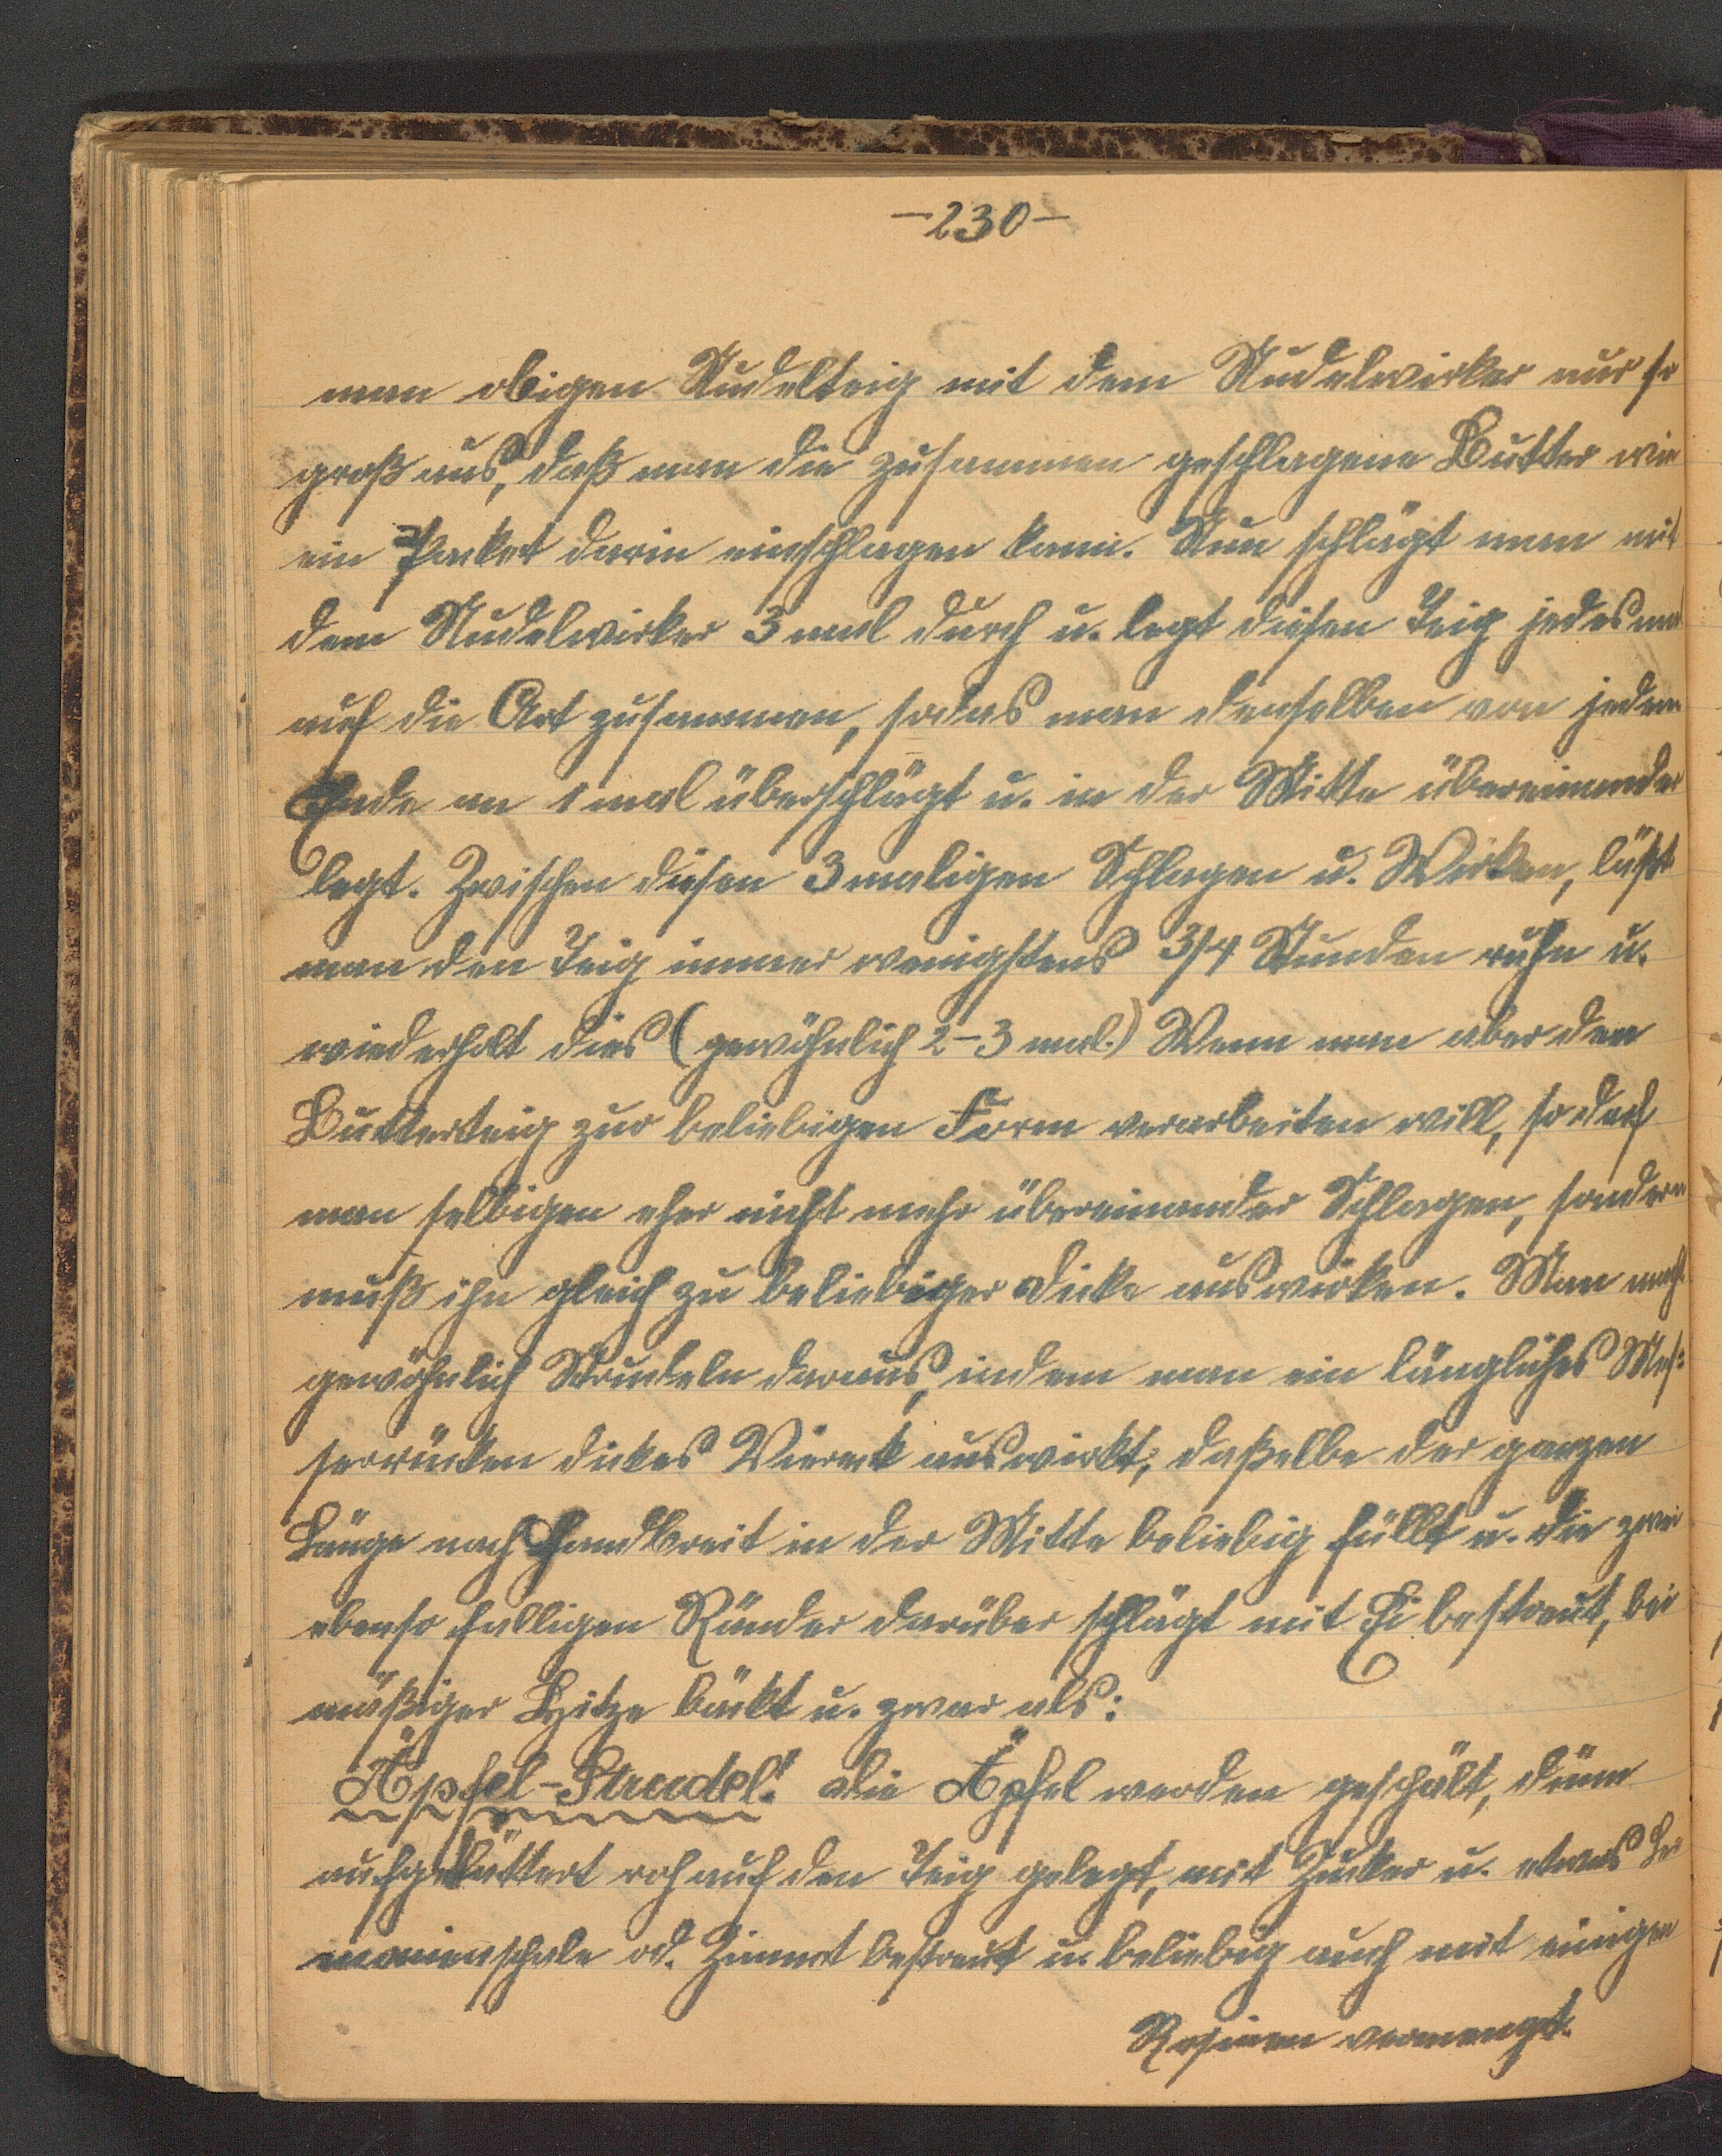 -230-
man obigen Nudelteig mit dem Nudelwirker nur so
groß aus, daß man die zusammen geschlagene Butter wie
ein Packet darin einschlagen kann. Nun schlägt man mit
dem Nudelwirker 3 mal durch u. legt diesen Teig jedesmal
auf die Art zusammen, sodas man denselben von jedem
Ende an 1 mal überschlägt u. in der Mitte übereinander
legt. Zwischen diesen 3 maligen Schlagen u. Wirken, läßt
man den Teig immer wenigstens 3/4 Stunden ruhn u.
wiederholt dies (gewöhnlich 2-3 mal.) Wenn man aber den
Butterteig zur beliebigen Form verarbeiten will, so darf
man selbigen eher nicht mehr übereinander Schlagen, sondern
muß ihn gleich zu beliebiger Dicke auswirken. Man macht
gewöhnlich Strudeln daraus, indem man ein längliches Mes=
serrücken dickes Viereck auswirkt, daßelbe der ganzen
Länge nach Handbreit in der Mitte beliebig füllt u. die zwei
ebenso Ränder darüber schlägt mit Ei bestreut, bei
mäßiger Hitze bäckt u. zwar als:
Äpfel-Strudel! Die Äpfel werden geschält, dünn
aufgeblättert roh auf den Teig gelegt, mit Zucker u. etwas Li=
monienschale od. Zimmt bestreut u. beliebig auch mit einigen
Rosinen vermengt.